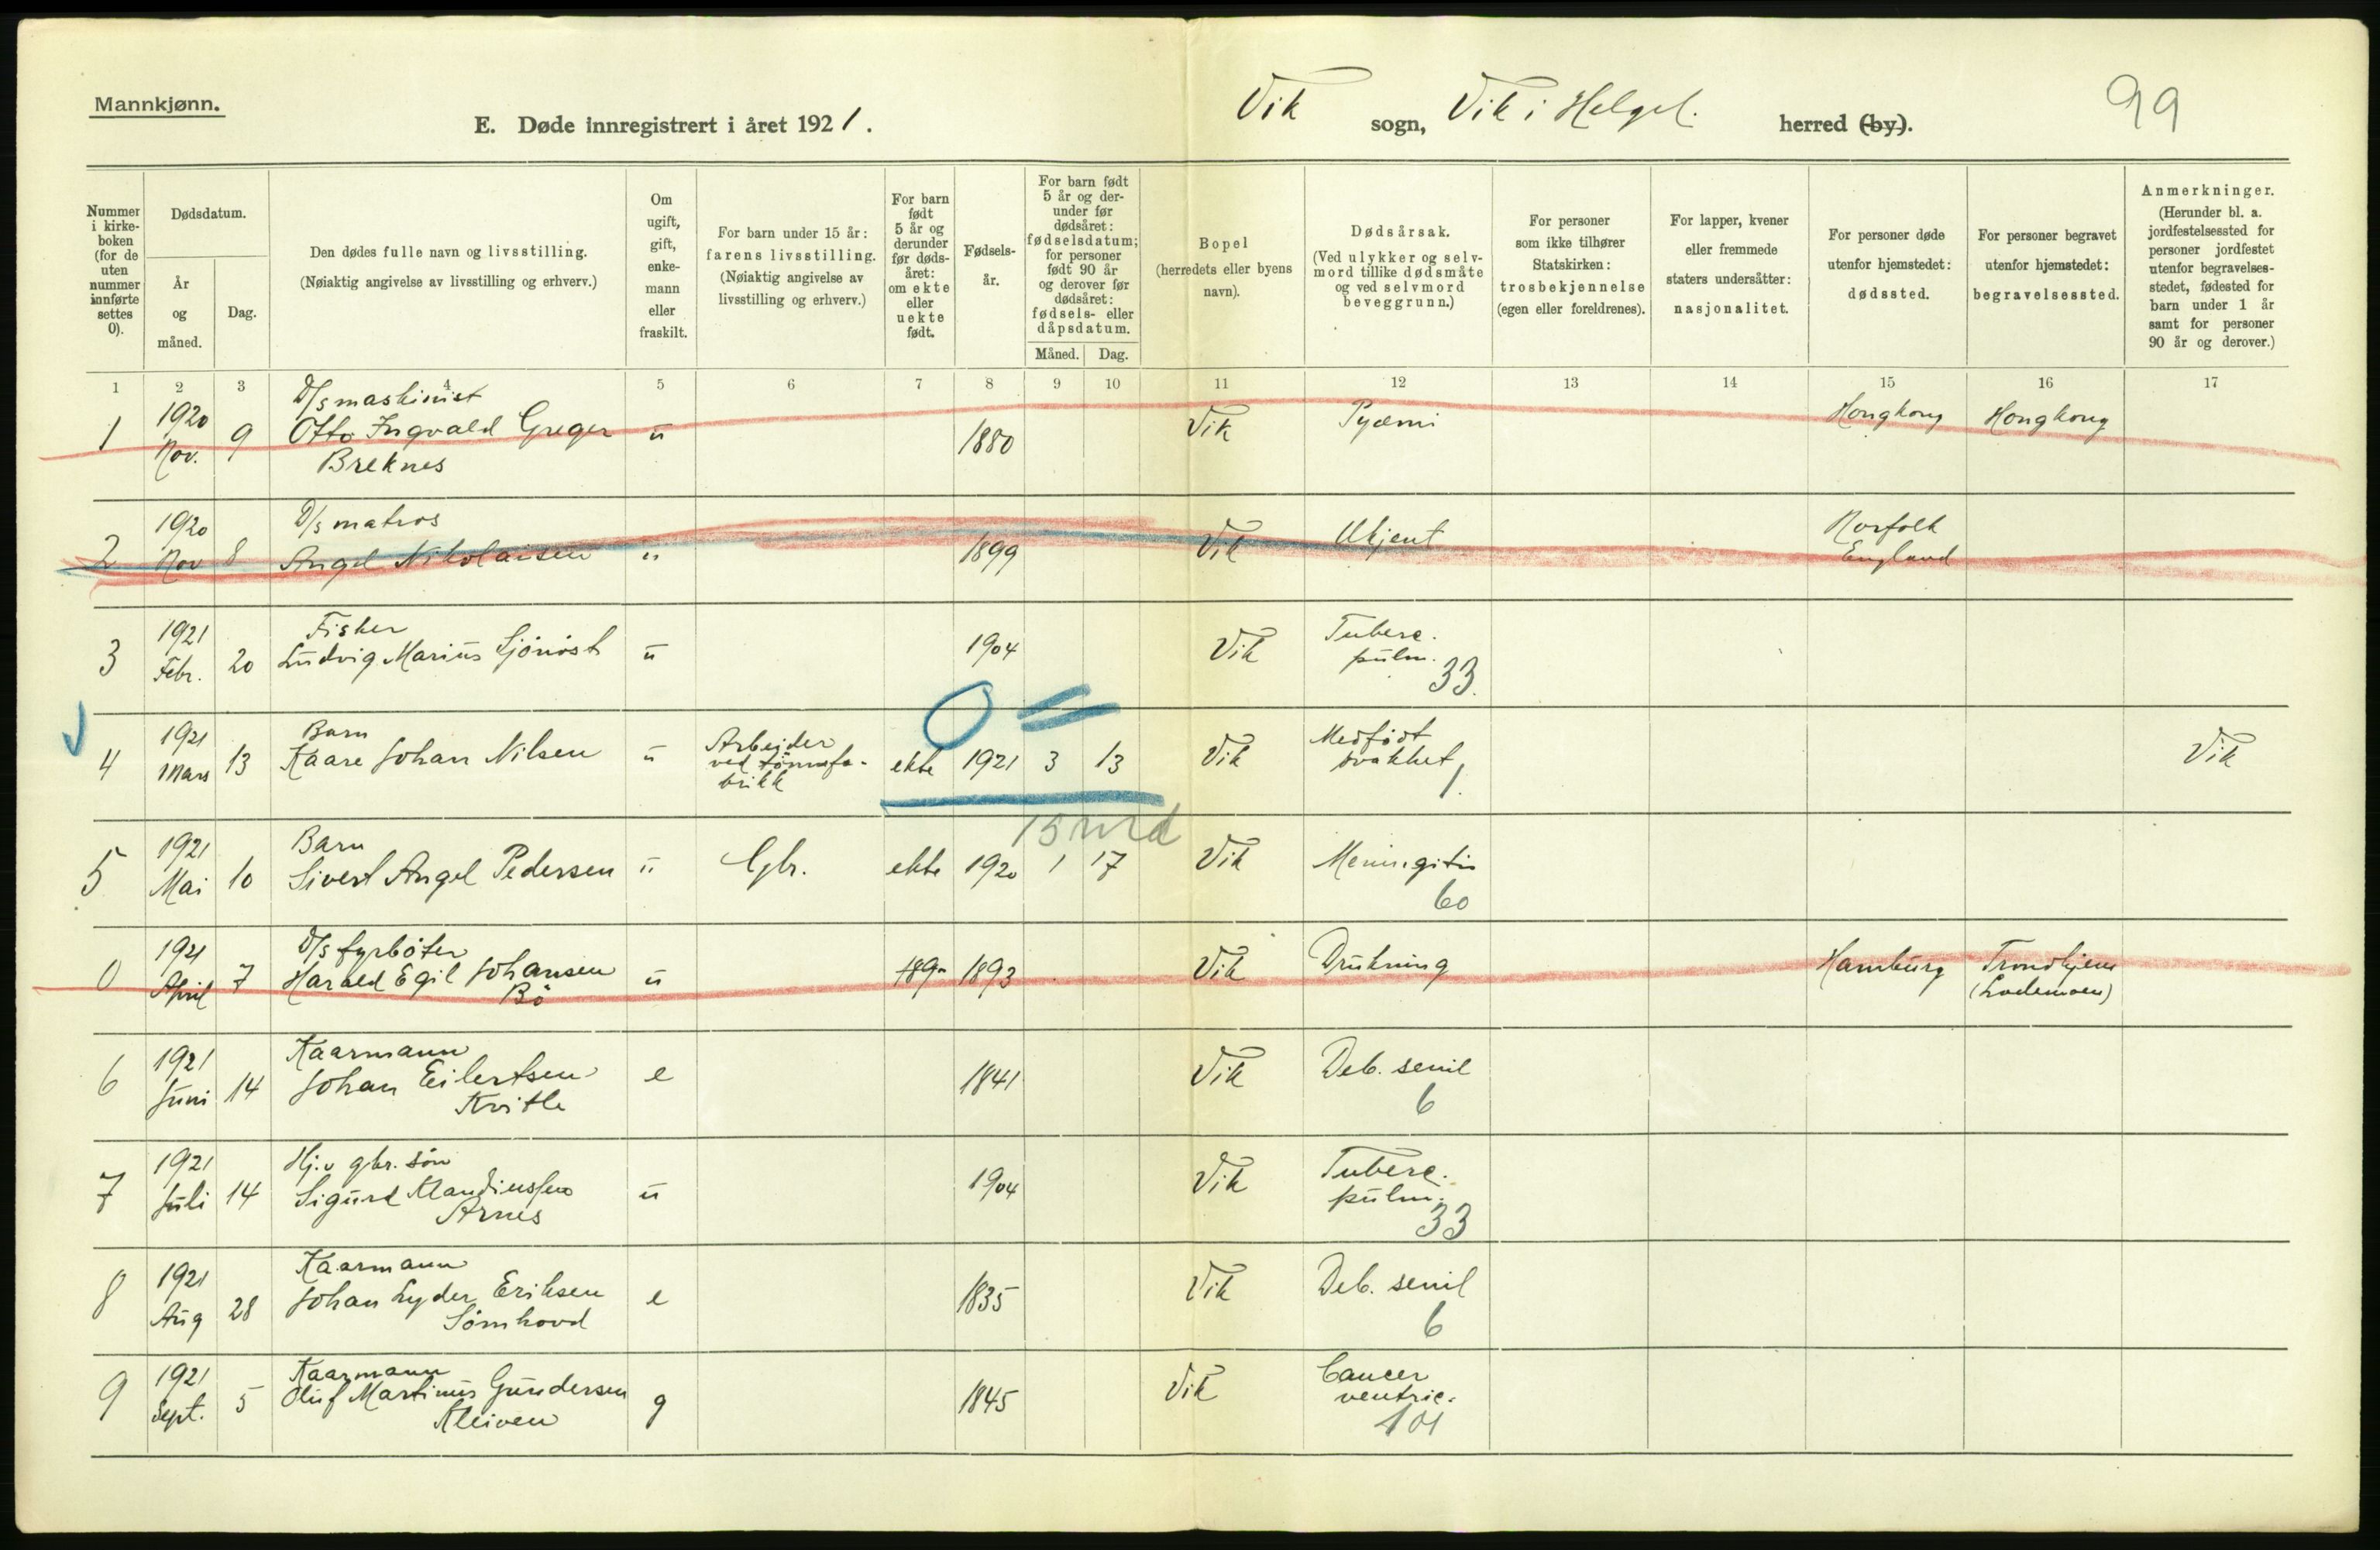 Mannkjønn.
E. Døde innregistrert i året 1921.
Vik sogn, Vik i Helgel. herred (by).
99
Nummer i kirke-boken (for de uten nummer innførte settes 0).
Dødsdatum.
År og måned.
Dag.
Den dødes fulle navn og livsstilling.
(Nøiaktig angivelse av livsstilling og erhverv.)
Om ugift, gift, enke-mann eller fraskilt.
For barn under 15 år: farens livsstilling. (Nøiaktig angivelse av livsstilling og erhverv.)
For barn født 5 år og derunder før døds-året: om ekte eller uekte født.
Fødsels-år.
For barn født 5 år og der-under før dødsåret: fødselsdatum; for personer født 90 år og derover før dødsåret: fødsels- eller dåpsdatum.
Måned. Dag.
Bopel (herredets eller byens navn).
Dødsårsak. (Ved ulykker og selv-mord tillike dødsmåte og ved selvmord beveggrunn.)
For personer som ikke tilhører Statskirken: trosbekjennelse (egen eller foreldrenes).
For lapper, kvener eller fremmede staters undersåtter: nasjonalitet.
For personer døde utenfor hjemstedet: dødssted.
For personer begravet utenfor hjemstedet: begravelsessted.
Anmerkninger. (Herunder bl. a. jordfestelsessted for personer jordfestet utenfor begravelses-stedet, fødested for barn under 1 år samt for personer 90 år og derover.)
1 2 3 4 5 6 7 8 9 10 11 12 13 14 15 16 17
D/s maskinist
1 1920 Nov. 9 Otto Ingvald Greger Breknes u 1880 Vik Pyæmi Hongkong Hongkong
D/s matros
2 1920 Nov 8 Angel Nikolaisen u 1899 Vik Ukjent Norfolk England
Fisker
3 1921 Febr. 20 Ludvig Marius Sjönöst u 1904 Vik Tuberc. pulm. 33.
0
Barn
4 1921 Mars 13 Kaare Johan Nilsen u Arbeider ved tönnefa-brikk ekte 1921 3 13 Vik Medfödt svakhet 1. Vik
15 md
Barn
5 1921 Mai 10 Sivert Angel Pedersen u Gbr. ekte 1920 1 17 Vik Meningitis 60
D/s fyrböter
0 1921 April 7 Harald Egil Johansen Bö u 189 1893 Vik Drukning Hamburg Trondhjem (Lademoen)
Kaarmann
6 1921 Juni 14 Johan Eilertsen e 1841 Vik Deb. senil 6
Hj.v gbr. sön
7 1921 Juli 14 Sigurd Klaudiussen Arnes u 1904 Vik Tuberc. pulm. 33
Kaarmann
8 1921 Aug 28 Johan Lyder Eriksen Sömhovd e 1835 Vik Deb. senil 6
Kaarmann
9 1921 Sept. 5 Oluf Martinus Gundersen Kleiven g 1845 Vik Cancer ventric. 101